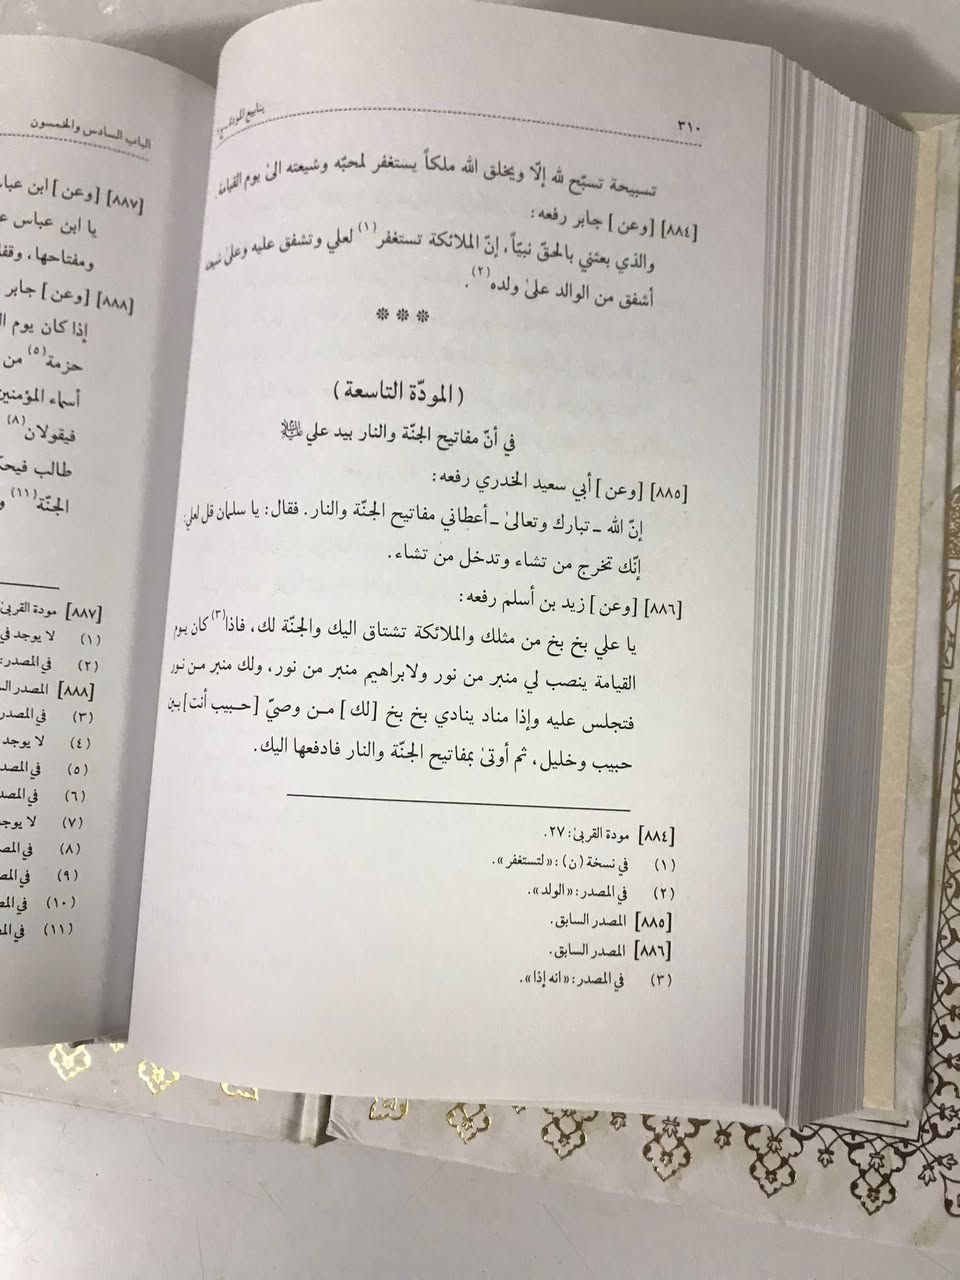 ٣١٠
ينابيع المودة
تسبيحة تسبّح لله إلّا ويخلق الله ملكاً يستغفر لمحبّه وشيعته الىٰ يوم القيامة.
[٨٨٤] [وعن] جابر رفعه:
والذي بعثني بالحقّ نبيّاً، إنّ الملائكة تستغفر(١) لعلي وتشفق عليه وعلىٰ شيعته
أشفق من الوالد علىٰ ولده(٢).
❊ ❊ ❊
(المودّة التاسعة)
في أنّ مفاتيح الجنّة والنار بيد علي عليه السلام
[٨٨٥] [وعن] أبي سعيد الخدري رفعه:
إنّ الله ـ تبارك وتعالىٰ ـ أعطاني مفاتيح الجنّة والنار. فقال: يا سلمان قل لعلي:
إنّك تخرج من تشاء وتدخل من تشاء.
[٨٨٦] [وعن] زيد بن أسلم رفعه:
يا علي بخ بخ من مثلك والملائكة تشتاق اليك والجنّة لك، فاذا(٣) كان يوم
القيامة ينصب لي منبر من نور ولابراهيم منبر من نور، ولك منبر من نور
فتجلس عليه وإذا مناد ينادي بخ بخ [لك] من وصيّ [حبيب أنت] بين
حبيب وخليل، ثم أوتىٰ بمفاتيح الجنّة والنار فادفعها اليك.
[٨٨٤] مودة القربىٰ: ٢٧.
(١) في نسخة (ن): «لتستغفر».
(٢) في المصدر: «الولد».
[٨٨٥] المصدر السابق.
[٨٨٦] المصدر السابق.
(٣) في المصدر: «انه إذا».
الباب السادس والخمسون
[٨٨٧] [وعن] ابن
يا ابن عباس
ومفتاحها،
[٨٨٨] [وعن] جابر
إذا كان يوم
حزمة(٥) من
أسماء المؤمنين
فيقولان(٨)
طالب
الجنّة(١١)
[٨٨٧] مودة القربىٰ
(١) لا يوجد في
(٢) في المصدر:
[٨٨٨] المصدر
(٣) في المصدر
(٤) لا يوجد
(٥) في المصدر
(٦) في المصدر
(٧) لا يوجد
(٨) في
(٩) في
(١٠) في
(١١) في